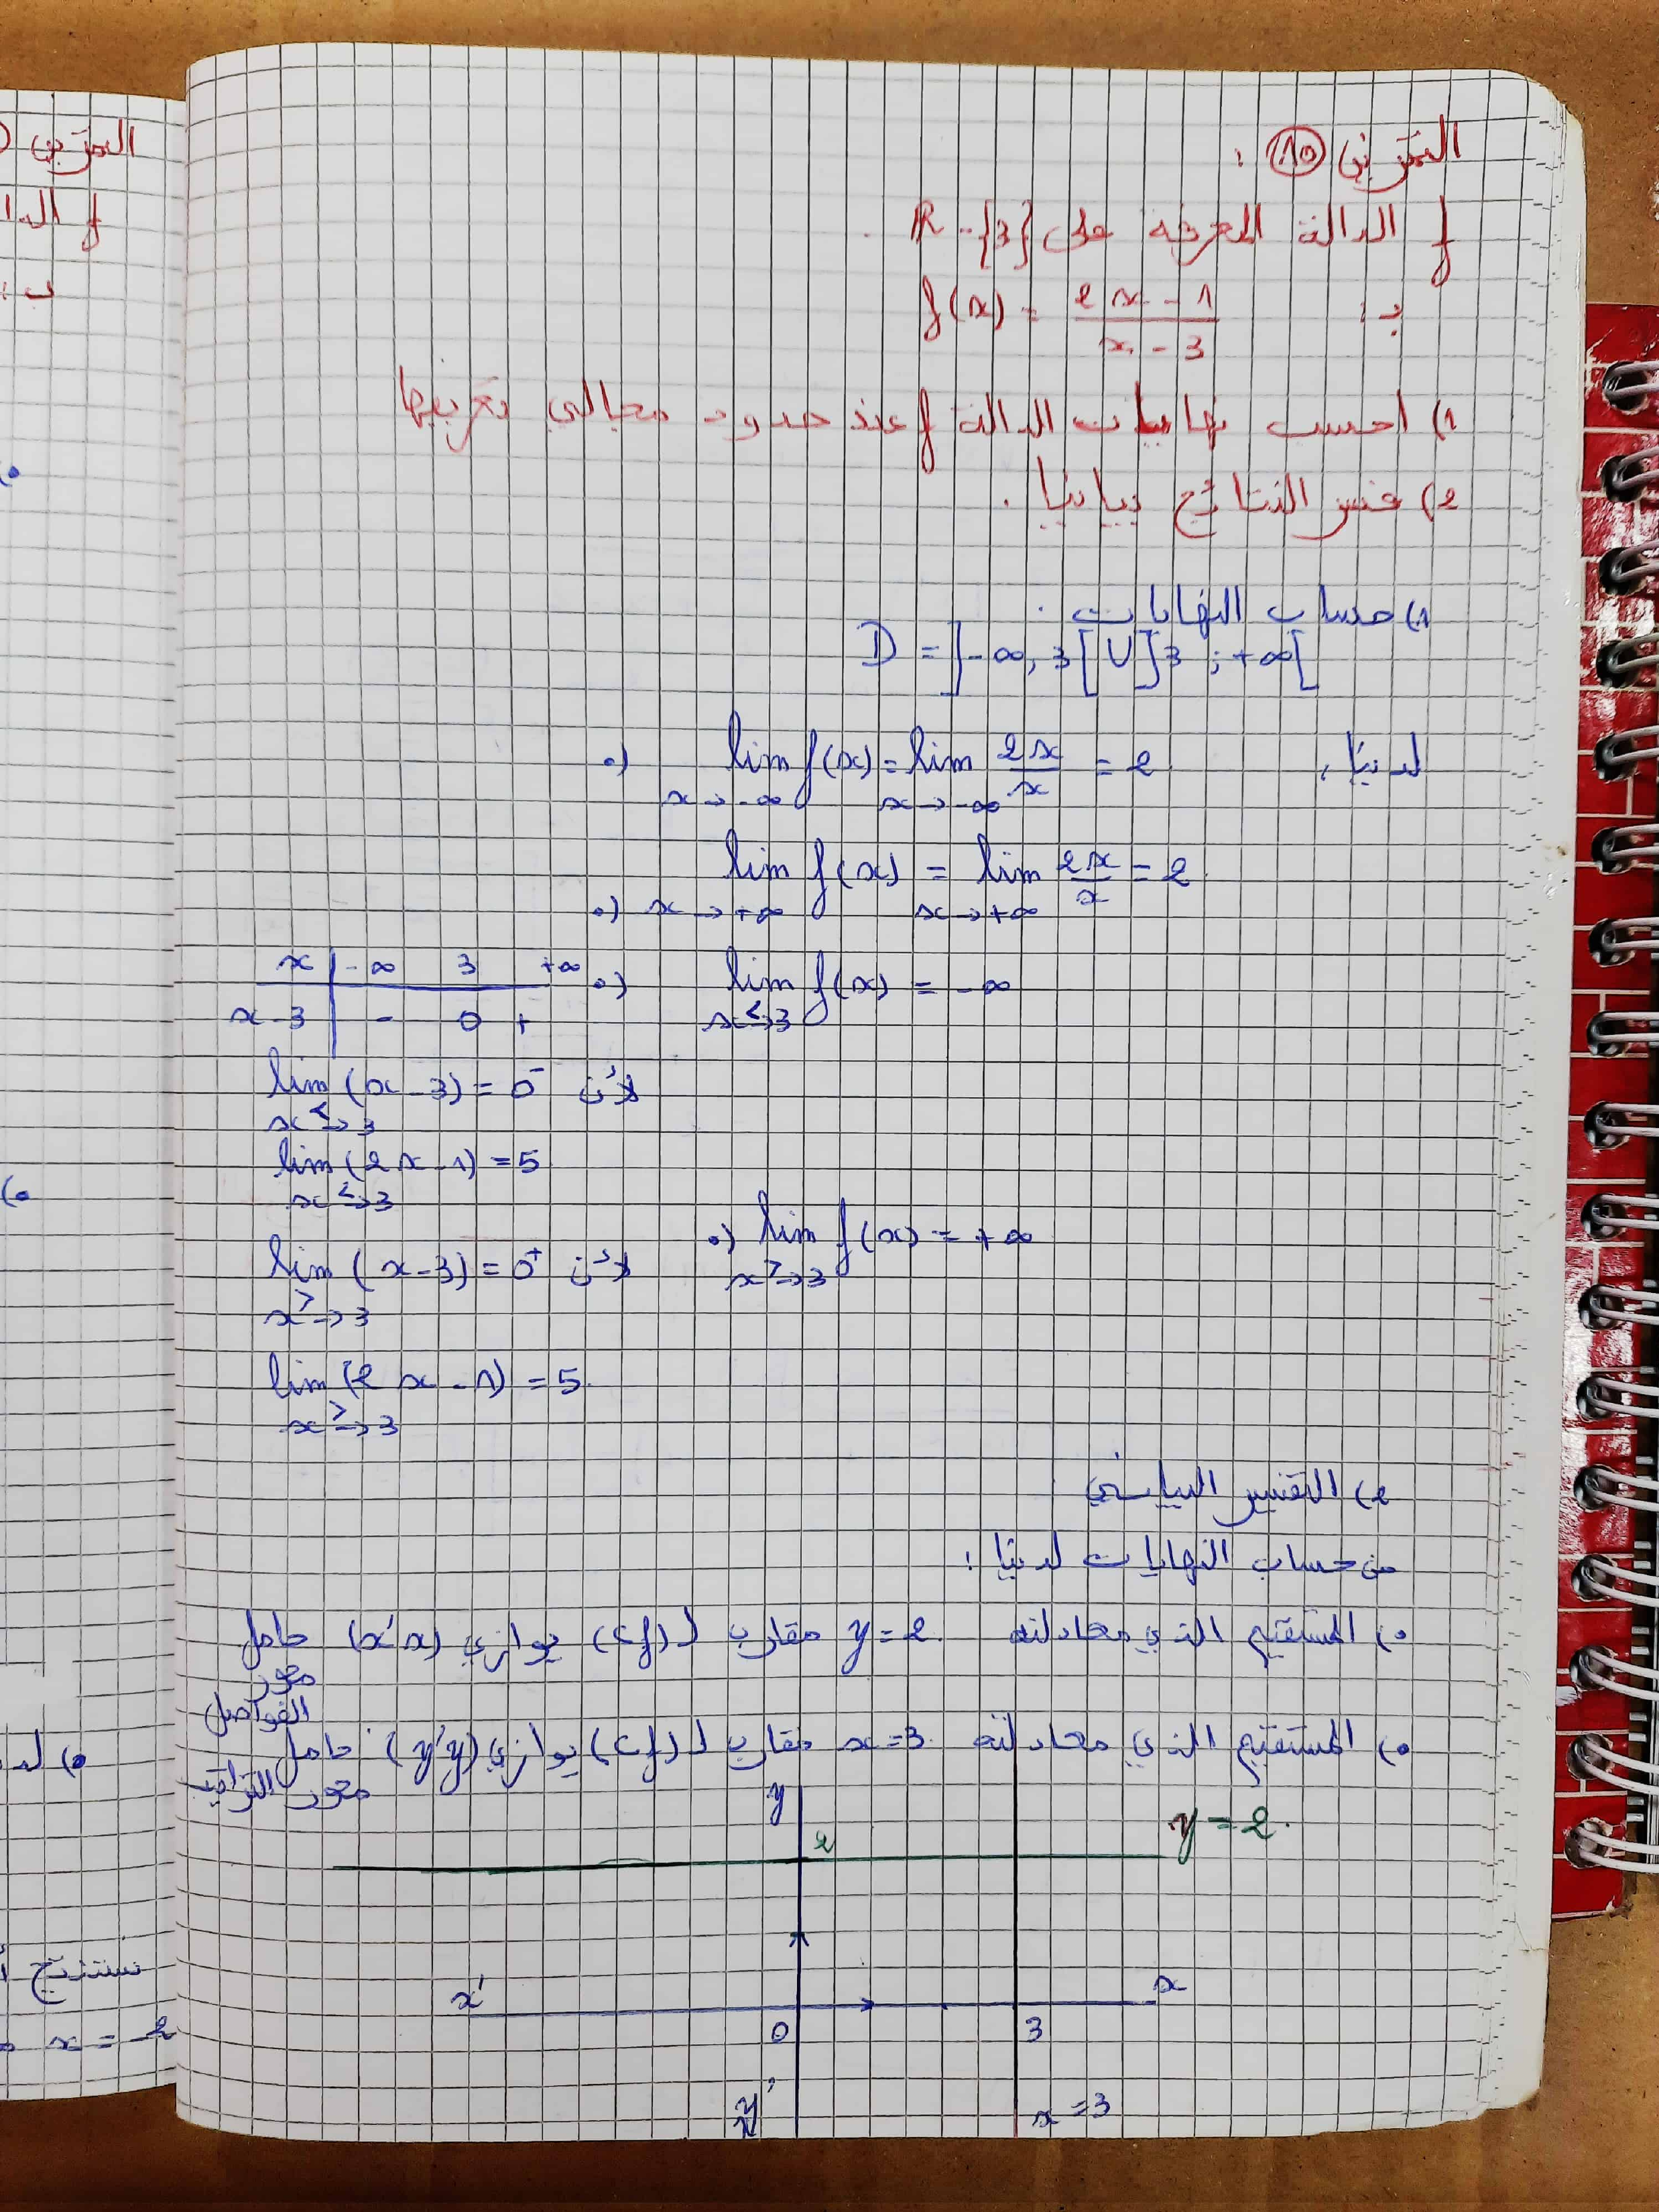 التمرين 10 :
f الدالة المعرفة على R-{3} .
بـ : f(x) = (2x - 1)/(x - 3)
1) احسب نهايات الدالة f عند حدود مجالي تعريفها
2) فسر النتائج بيانيا .
1) حساب النهايات :
D = ]-∞, 3[ U ]3 ; +∞[
لدينا : •) lim f(x) = lim 2x/x = 2
x→-∞ x→-∞
•) lim f(x) = lim 2x/x = 2
x→+∞ x→+∞
•) lim f(x) = -∞
x<→3
x | -∞ 3 +∞
x-3 | - 0 +
لأن lim (x-3) = 0⁻
x<→3
lim (2x-1) = 5
x<→3
•) lim f(x) = +∞
x>→3
لأن lim (x-3) = 0⁺
x>→3
lim (2x-1) = 5
x>→3
2) التفسير البياني
من حساب النهايات لدينا :
•) المستقيم الذي معادلته y = 2 مقارب لـ (Cf) يوازي (x'x) حامل
محور
الفواصل
•) المستقيم الذي معادلته x = 3 مقارب لـ (Cf) يوازي (y'y) حامل
محور التراتيب
y
2
y = 2
x'
x
0
3
y'
x = 3
التمرين
f
ب :
•)
•)
•)
نستنتج
x = -2